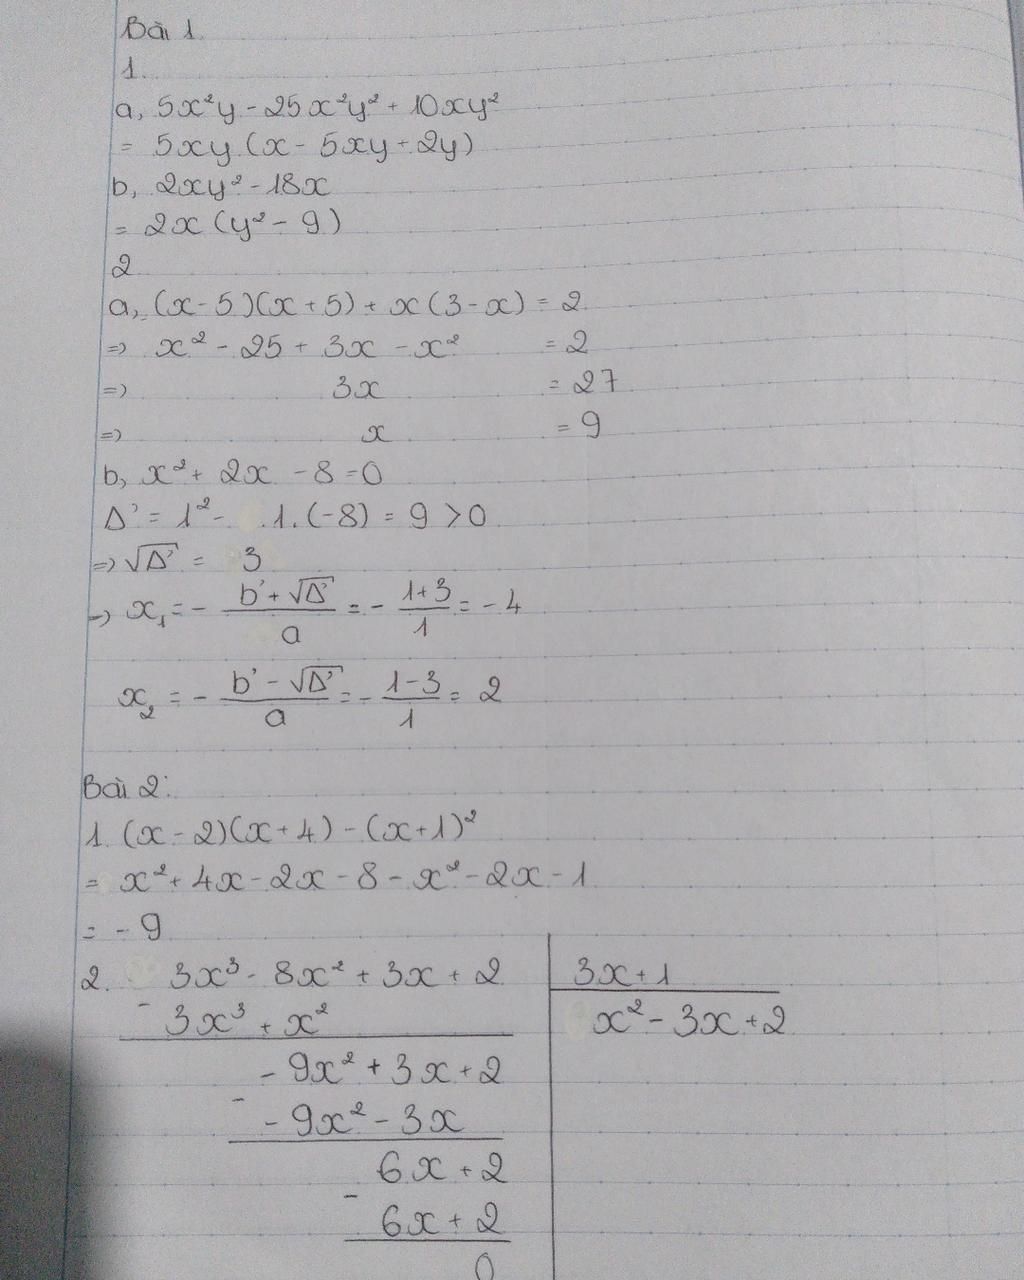 Bài 1.
1.
a, 5x²y - 25x²y² + 10xy²
= 5xy (x - 5xy + 2y)
b, 2xy² - 18x
= 2x (y² - 9)
2
a, (x - 5)(x + 5) + x (3 - x) = 2
=> x² - 25 + 3x - x² = 2
=> 3x = 27
=> x = 9
b, x² + 2x - 8 = 0
Δ' = 1² - 1.(-8) = 9 > 0
=> √Δ' = 3
=> x₁ = - (b' + √Δ')/a = - (1+3)/1 = - 4
x₂ = - (b' - √Δ')/a = - (1-3)/1 = 2
Bài 2:
1. (x - 2)(x + 4) - (x + 1)²
= x² + 4x - 2x - 8 - x² - 2x - 1
= - 9
2. 3x³ - 8x² + 3x + 2 | 3x + 1
- 3x³ + x² | x² - 3x + 2
- 9x² + 3x + 2
- - 9x² - 3x
6x + 2
- 6x + 2
0